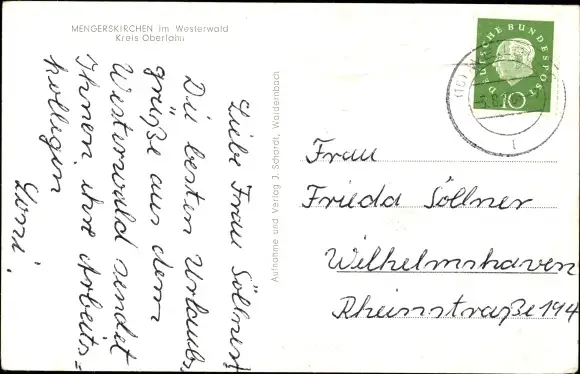 MENGERSKIRCHEN im Westerwald
Kreis Oberlahn
Liebe Frau Söllner!
Die besten Urlaubs
grüße aus dem
Westerwald sendet
Ihnen ihre Arbeits=
kollegin
Aufnahme und Verlag J. Schardt, Waldernbach
DEUTSCHE BUNDESPOST
10
Frau
Frieda Söllner
Wilhelmshaven
Rheinstraße 194